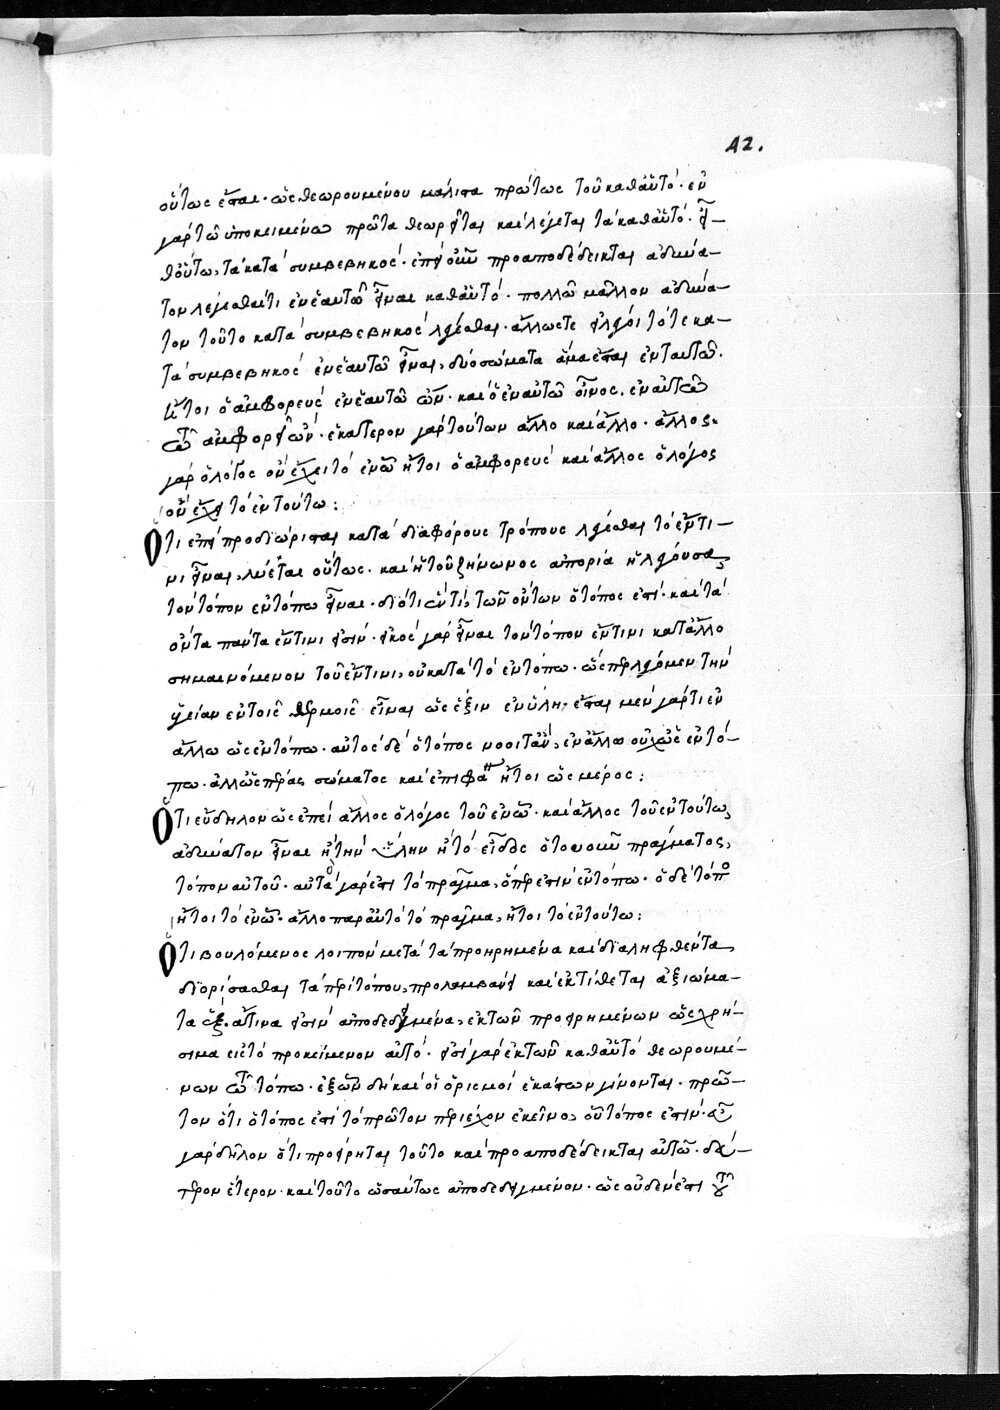 42.
οὕτως ἔσται· ὡς θεωρουμένου μάλιστα πρώτως τοῦ καθ' αὑτό· ἐν
γὰρ τῶ ὑποκειμένω πρῶτα θεωρεῖται καὶ λέγεται τὰ καθ' αὑτό· εἶ–
θ' οὕτω, τὰ κατὰ συμβεβηκός· ἐπεὶ οὖν προαποδέδεικται ἀδύνα–
τον λέγεσθαί τι ἐν ἑαυτῶ εἶναι καθ' αὑτό· πολλῶ μᾶλλον ἀδύνα–
τον τοῦτο κατὰ συμβεβηκὸς λέγεσθαι· ἄλλως τε εἰ λέγοιτό τε κα–
τὰ συμβεβηκὸς ἐν ἑαυτῶ εἶναι, δύο σώματα ἅμα ἔσται ἐν ταυτῶ.
ἤτοι ὁ ἀμφορεὺς ἐν ἑαυτῶ ὤν· καὶ ὁ ἐν αὐτῶ οἶνος. ἐν αὐτῶ
τῶ ἀμφορεῖ ὤν· ἑκάτερον γὰρ τούτων ἄλλο καὶ ἄλλο· ἄλλος
γὰρ ὁ λόγος οὗ ἔχει τὸ ἐν ὧ ἤτοι ὁ ἀμφορεὺς καὶ ἄλλος ὁ λόγος
οὗ ἔχει τὸ ἐν τούτω:
Ὅτι ἐπεὶ προσδιώρισται κατὰ διαφόρους τρόπους λέγεσθαι τὸ ἔν τι–
νι εἶναι, λύεται οὕτως· καὶ ἡ τοῦ ζήνωνος ἀπορία ἡ λέγουσα,
τὸν τόπον ἐν τόπω εἶναι· διότι ἕν τι, τῶν ὄντων ὁ τόπος ἐστί· καὶ τὰ
ὄντα πάντα ἔν τινι εἰσίν· εἰκὸς γὰρ εἶναι τὸν τόπον ἔν τινι κατ' ἄλλο
σημαινόμενον τοῦ ἔν τινι, οὐ κατὰ τὸ ἐν τόπω· ὥσπερ λέγομεν τὴν
ὑγείαν ἐν τοῖς θερμοῖς εἶναι ὡς ἕξιν ἐν ὕλη· ἔσται μὲν γάρ τι ἐν
ἄλλω ὡς ἐν τόπω· αὐτὸς δὲ ὁ τόπος νοοῖτ' ἂν, ἐν ἄλλω οὐχ ὡς ἐν τό–
πω· ἀλλ' ὡς πέρας σώματος καὶ ἐπιφά ἤτοι ὡς μέρος:
Ὅτι εὔδηλον ὡς ἐπεὶ ἄλλος ὁ λόγος τοῦ ἐν ὧ· καὶ ἄλλος τοῦ ἐν τούτω,
ἀδύνατον εἶναι ἢ τὴν ὕλην ἢ τὸ εἶδος ὁτουοῦν πράγματος,
τόπον αὐτοῦ· αὐτὰ γάρ ἐστι τὸ πρᾶγμα, ὅπερ ἐστὶν ἐν τόπω· ὁ δὲ τόπο
ἤτοι τὸ ἐν ὧ· ἄλλο παρ' αὐτὸ τὸ πρᾶγμα, ἤτοι τὸ ἐν τούτω:
Ὅτι βουλόμενος λοιπὸν μετὰ τὰ προηρημένα καὶ διαληφθέντα,
διορίσασθαι τὰ περὶ τόπου, προλαμβάνει καὶ ἐκτίθεται ἀξιώμα–
τα ἓξ· ἅτινα εἰσὶν ἀποδεδειγμένα, ἐκ τῶν προειρημένων ὡς χρή–
σιμα εἰς τὸ προκείμενον αὐτό· εἰσὶ γὰρ ἐκ τῶν καθ' αὑτὸ θεωρουμέ–
νων τῶ τόπω· ἐξ ὧν δὴ καὶ οἱ ὁρισμοὶ ἑκάστων γίνονται· πρῶ–
τον ὅτι ὁ τόπος ἐστὶ τὸ πρῶτον περιέχον ἐκεῖνο, οὗ τόπος ἐστίν· εὖ
γὰρ δῆλον ὅτι προείρηται τοῦτο καὶ προαποδέδεικται αὐτῶ· δεύ–
τερον ἕτερον· καὶ τοῦτο ὡσαύτως ἀποδεδειγμένον· ὡς οὐδέν ἐστι τοῦ